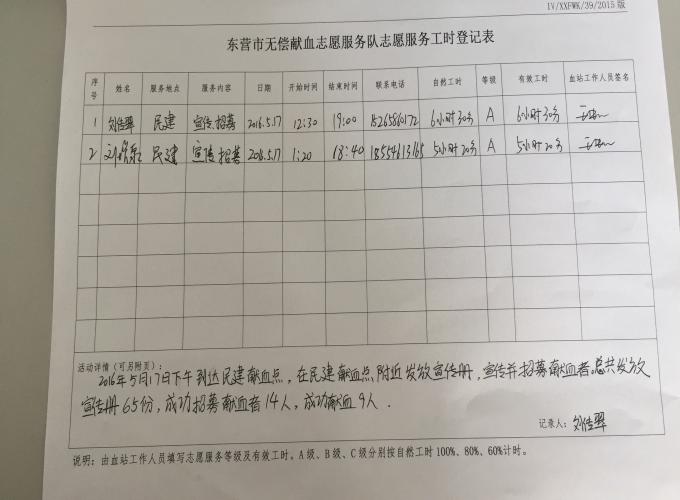 IV/XXFWK/39/2015版
东营市无偿献血志愿服务队志愿服务工时登记表
序号 姓名 服务地点 服务内容 日期 开始时间 结束时间 联系电话 自然工时 等级 有效工时 血站工作人员签名
1 刘佳翠 民建 宣传.招募 2016.5.17 12:30 19:00 15265860172 6小时30分 A 6小时30分
2 民建 宣传.招募 2016.5.17 1:20 18:40 18554613165 5小时20分 A 5小时20分
活动详情（可另附页）：
2016年5月17日下午到达民建献血点，在民建献血点附近发放宣传册，宣传并招募献血者。总共发放
宣传册65份，成功招募献血者14人，成功献血9人.
记录人：刘佳翠
说明：由血站工作人员填写志愿服务等级及有效工时。A级、B级、C级分别按自然工时100%、80%、60%计时。